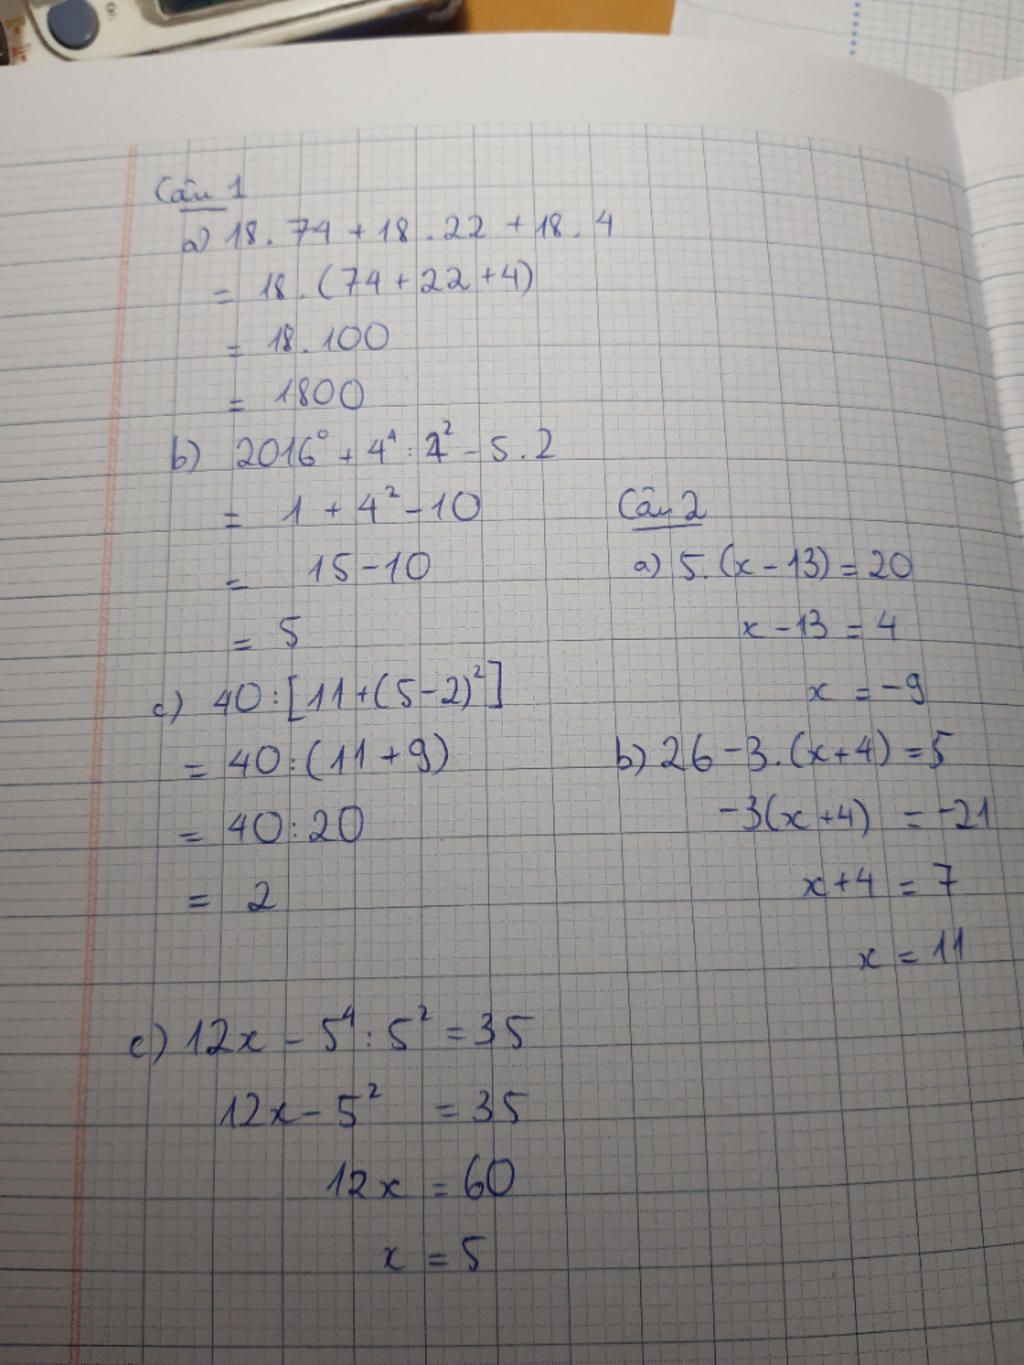 Câu 1
a) 18 . 74 + 18 . 22 + 18 . 4
= 18 . (74 + 22 + 4)
= 18 . 100
= 1800
b) 2016⁰ + 4⁴ : 4² - 5 . 2
= 1 + 4² - 10
= 15 - 10
= 5
c) 40 : [11 + (5 - 2)²]
= 40 : (11 + 9)
= 40 : 20
= 2
Câu 2
a) 5. (x - 13) = 20
x - 13 = 4
x = -9
b) 26 - 3 . (x + 4) = 5
-3(x + 4) = -21
x + 4 = 7
x = 11
c) 12x - 5⁴ : 5² = 35
12x - 5² = 35
12x = 60
x = 5